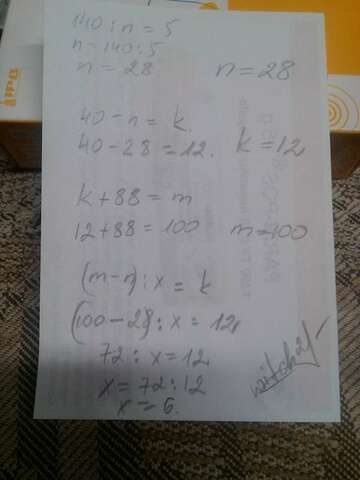 140 : n = 5
n = 140 : 5
n = 28 n = 28
40 - n = k
40 - 28 = 12. k = 12
k + 88 = m
12 + 88 = 100 m = 100
(m - n) : x = k
(100 - 28) : x = 12
72 : x = 12
x = 72 : 12
x = 6.
witch21